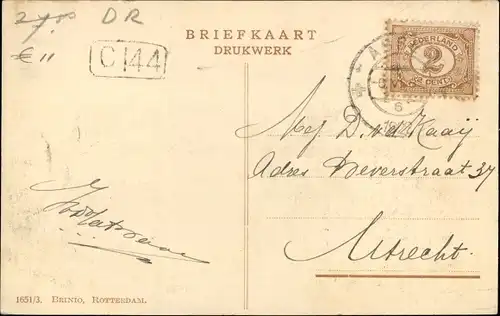 27.50 DR
€ 11
C 144
BRIEFKAART
DRUKWERK
NEDERLAND
2
CENT
Mej D. v. d. Kaaij
Adres Heverstraat 37
Utrecht
1651/3. BRINIO, ROTTERDAM.